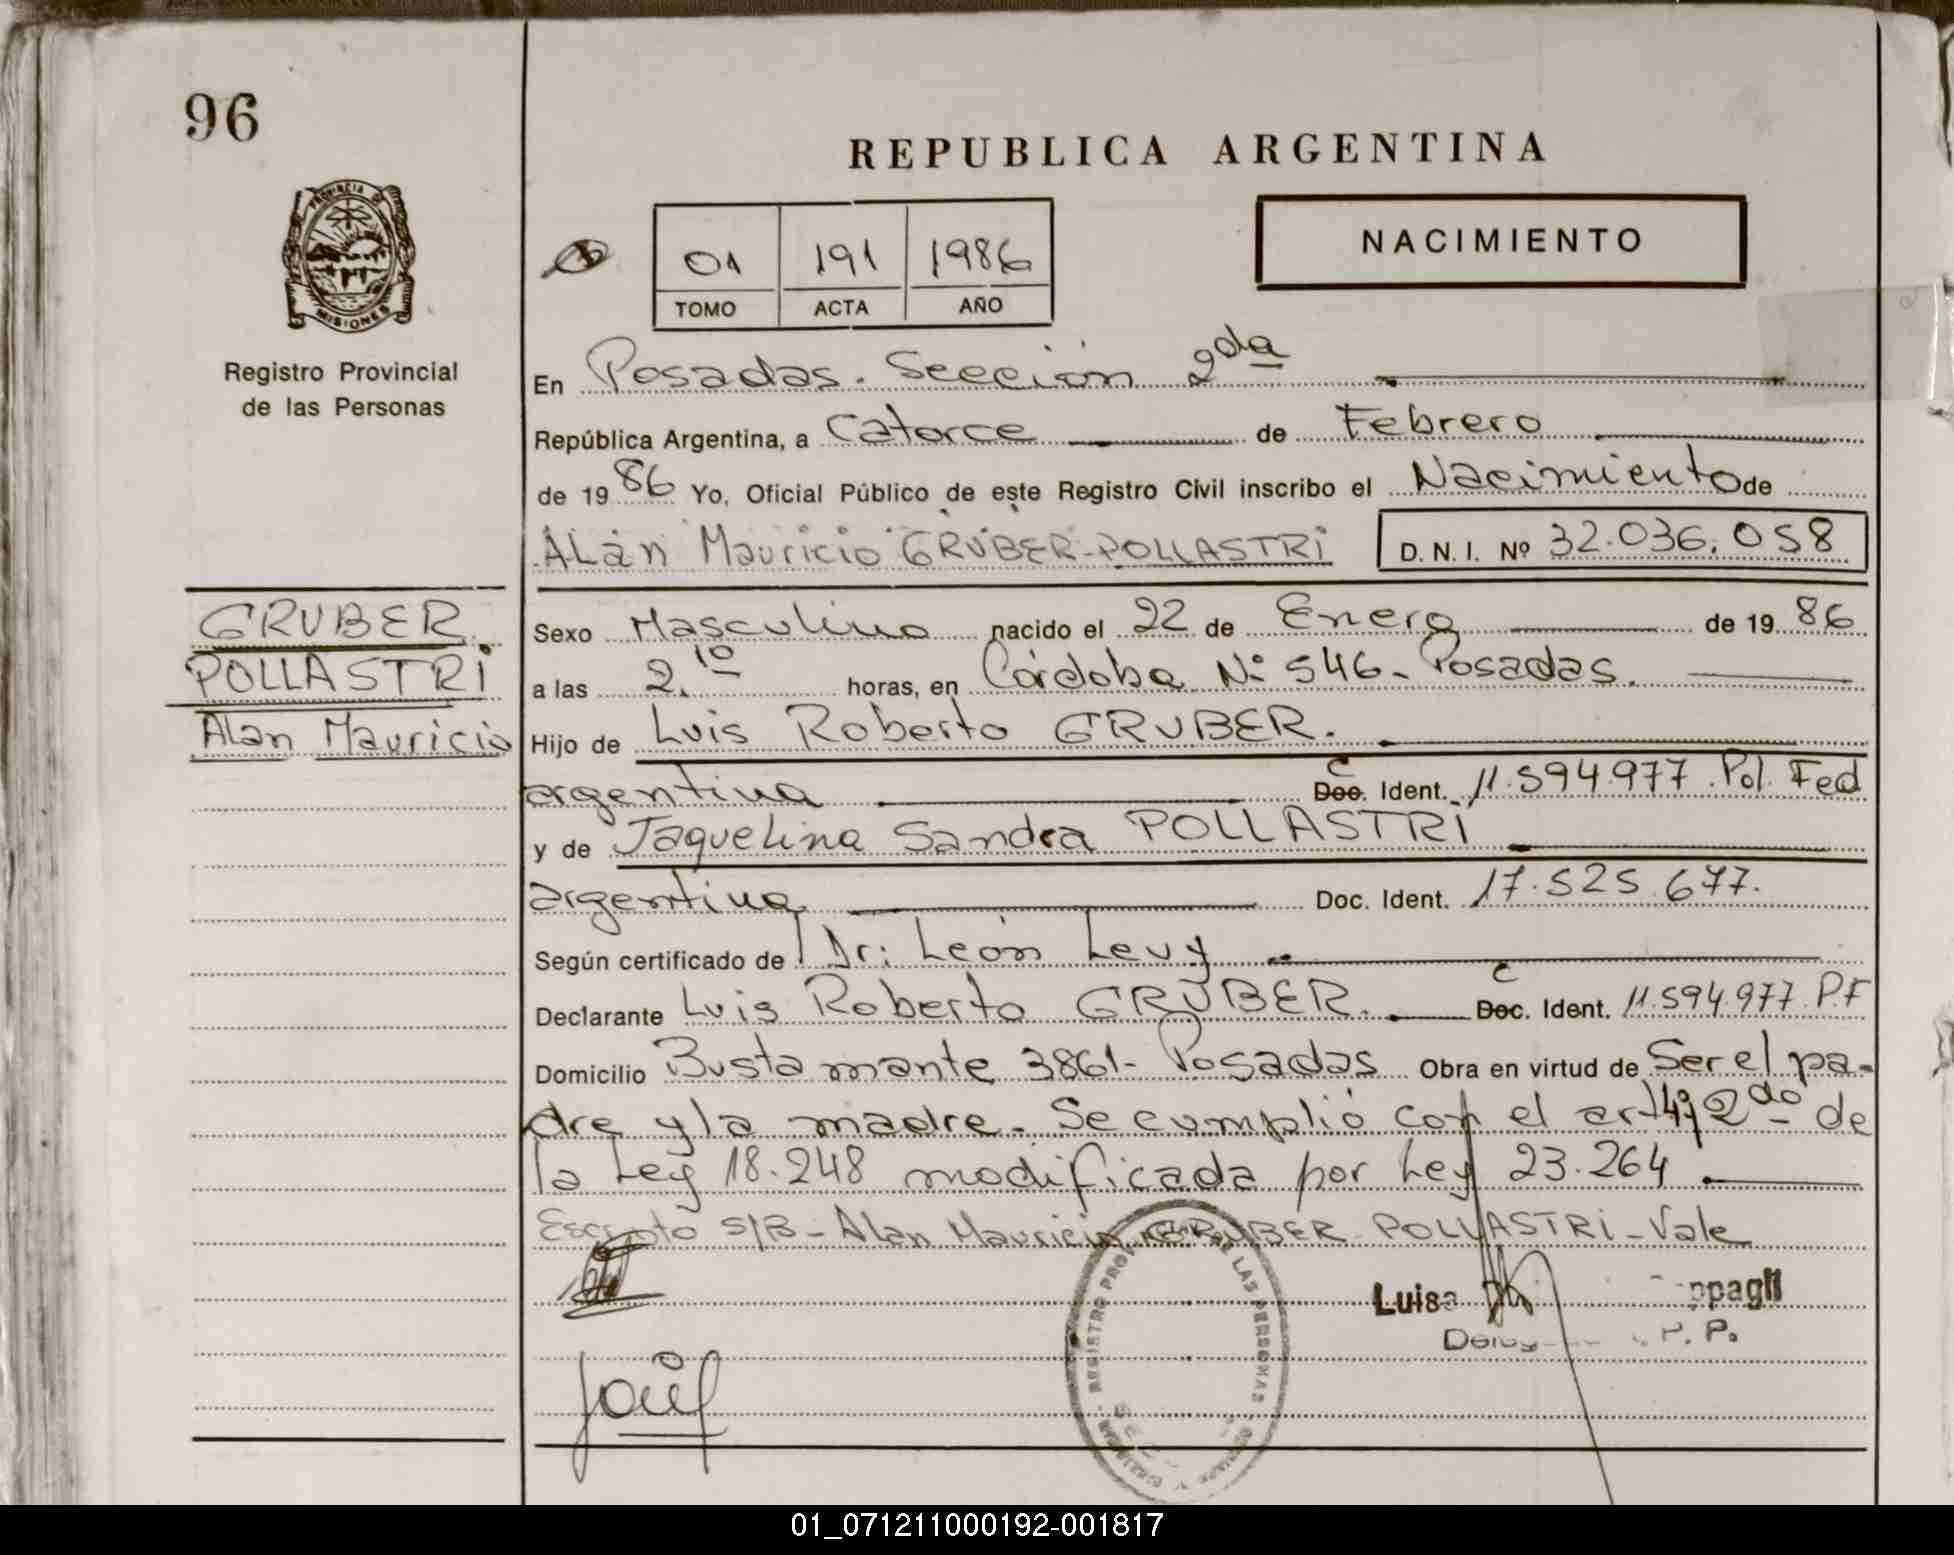 96
REPUBLICA ARGENTINA
PROVINCIA DE
MISIONES
01 191 1986
TOMO ACTA AÑO
NACIMIENTO
Registro Provincial
de las Personas
En Posadas. Sección 2da
República Argentina, a Catorce de Febrero
de 1986 Yo, Oficial Público de este Registro Civil inscribo el Nacimiento de
Alan Mauricio GRUBER-POLLASTRI D. N. I. Nº 32.036.058
GRUBER
POLLASTRI
Alan Mauricio
Sexo Masculino nacido el 22 de Enero de 1986
a las 2.10 horas, en Córdoba Nº 546- Posadas.
Hijo de Luis Roberto GRUBER.
argentina C Doc. Ident. 11.594.977. Pol. Fed
y de Jaquelina Sandra POLLASTRI
argentina Doc. Ident. 17.525.677.
Según certificado de Dr: León Levy
Declarante Luis Roberto GRUBER. C Doc. Ident. 11.594.977. P.F
Domicilio Bustamante 3861- Posadas Obra en virtud de Ser el pa-
dre y la madre. Se cumplió con el art 4º 2do de
la Ley 18.248 modificada por Ley 23.264
Escrito S/B - Alan Mauricio GRUBER POLLASTRI - Vale
REGISTRO PROV. DE LAS PERSONAS
Luisa ppagli
P. P.
01_071211000192-001817